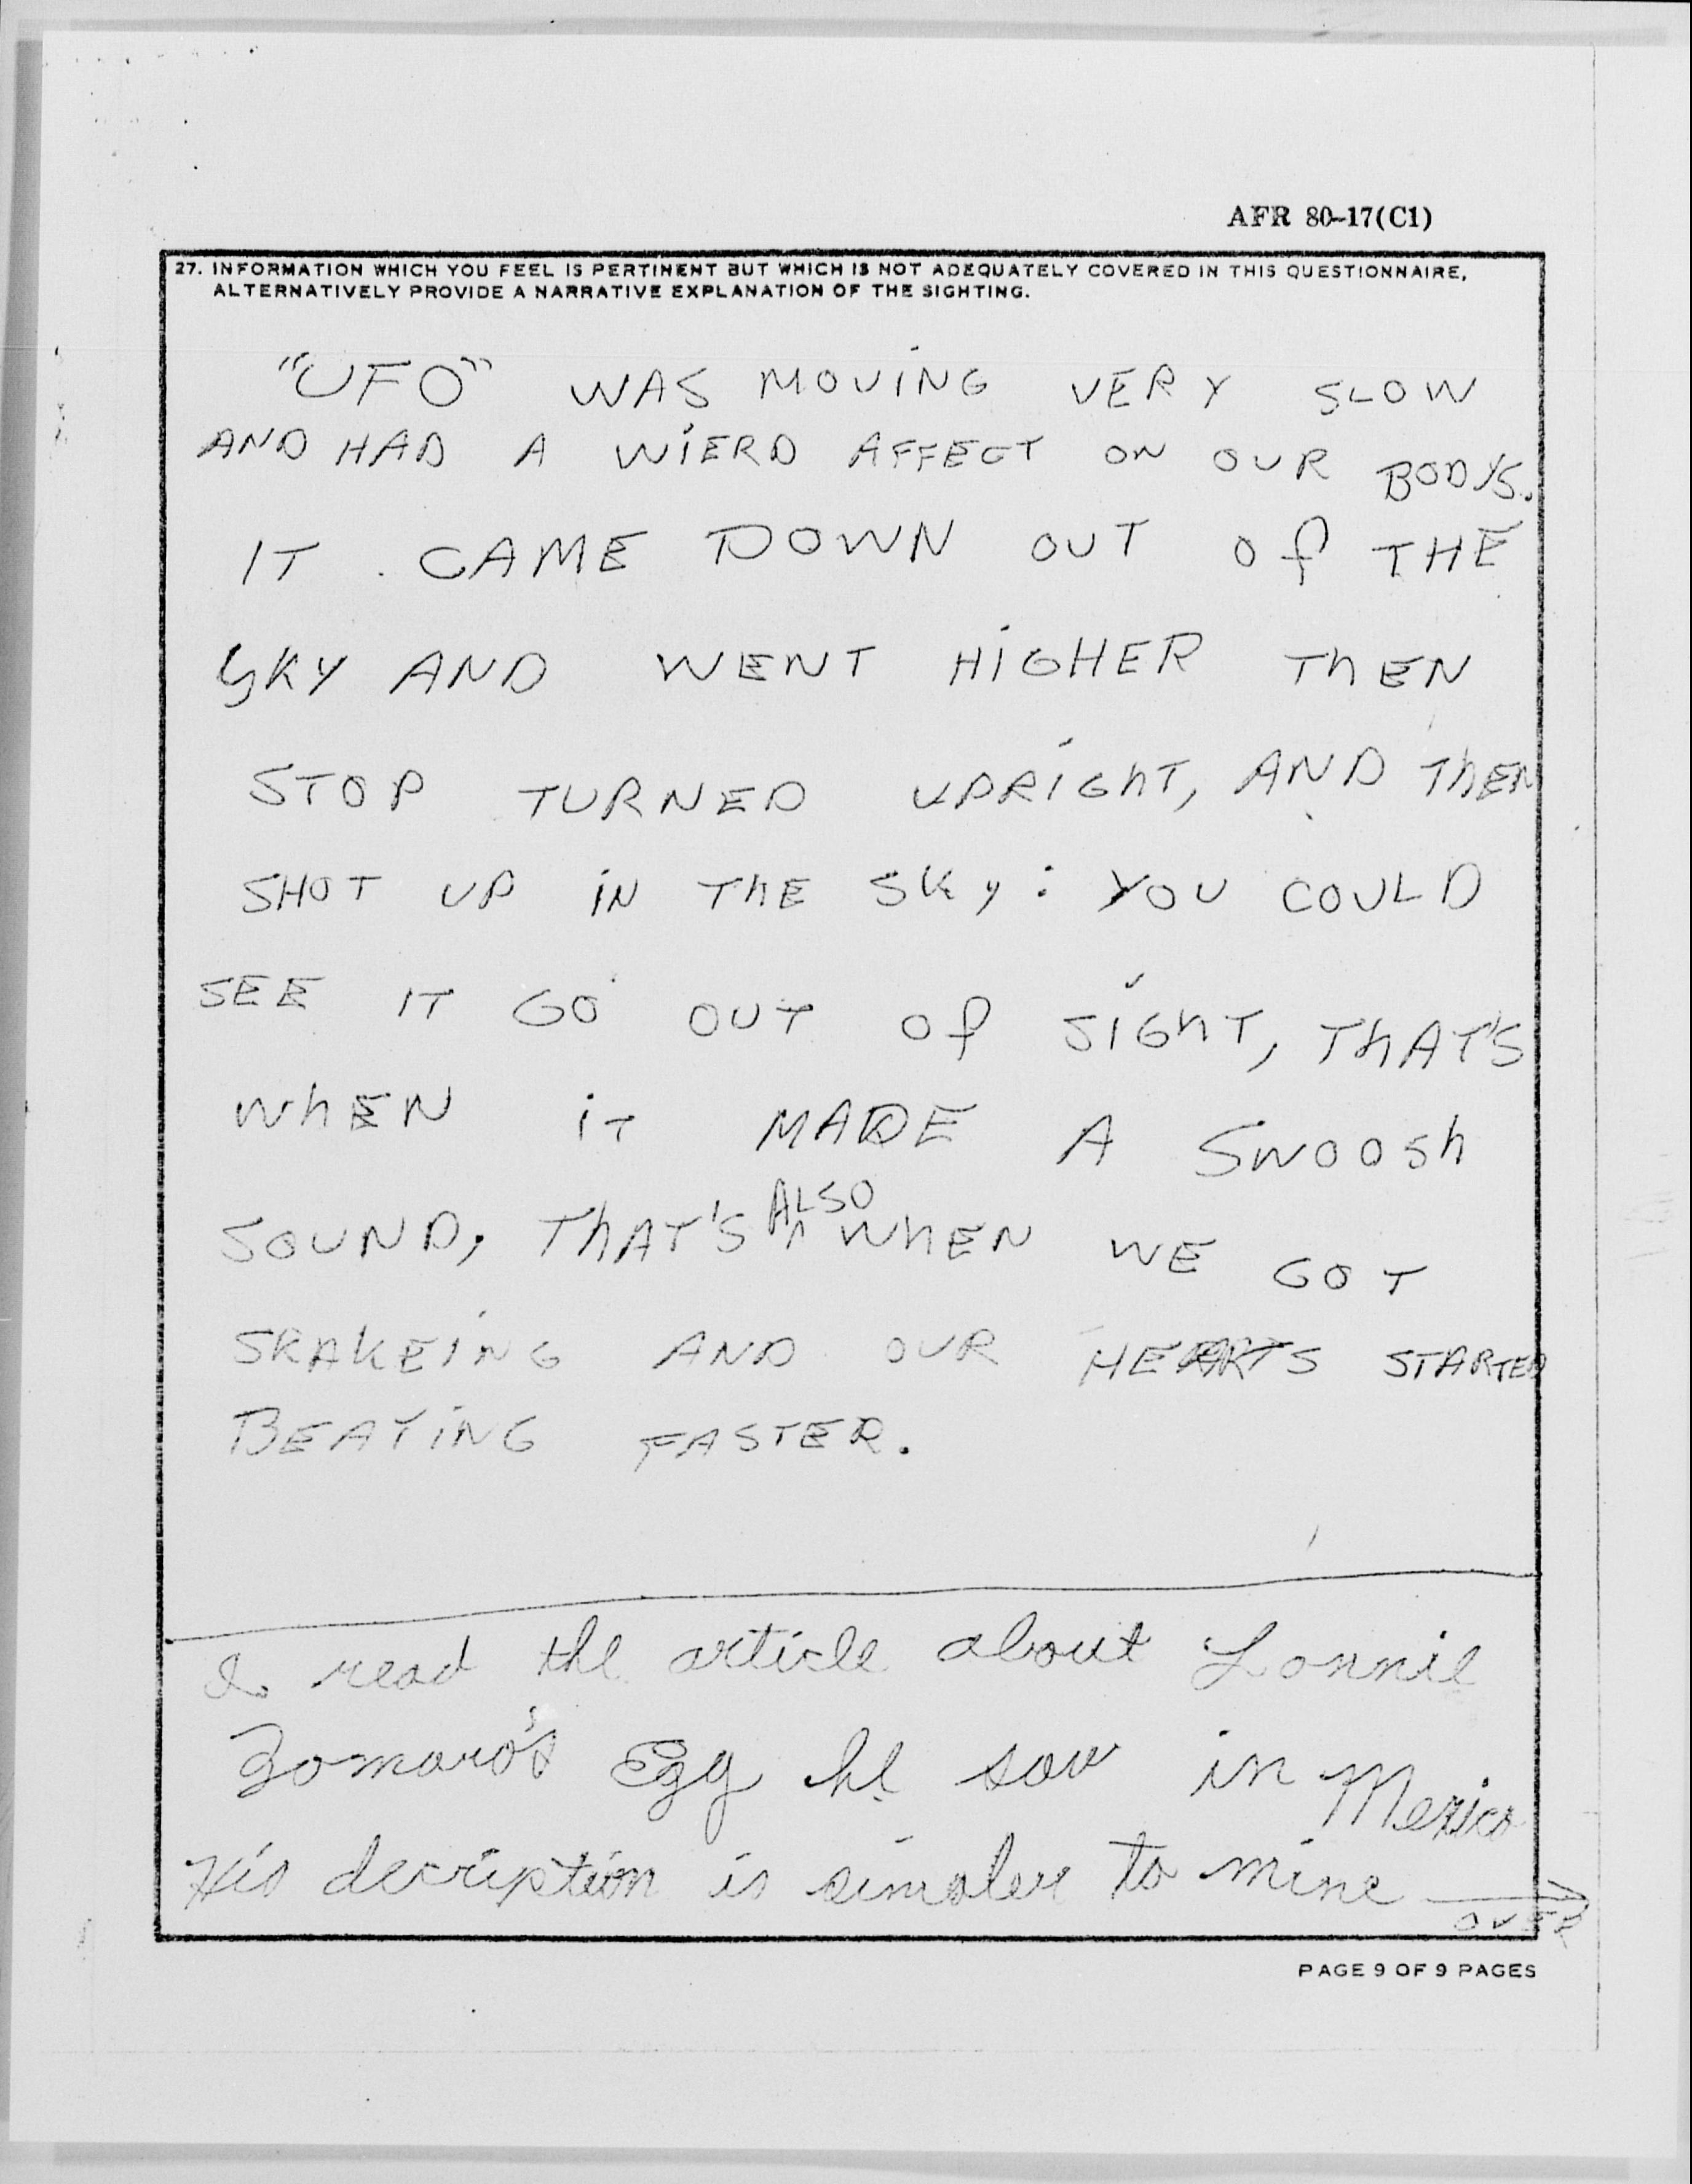 AFR 80-17(C1)
27. INFORMATION WHICH YOU FEEL IS PERTINENT BUT WHICH IS NOT ADEQUATELY COVERED IN THIS QUESTIONNAIRE,
ALTERNATIVELY PROVIDE A NARRATIVE EXPLANATION OF THE SIGHTING.
"UFO" WAS MOVING VERY SLOW
AND HAD A WIERD AFFECT ON OUR BODYS.
IT CAME DOWN OUT Of THE
SKY AND WENT HiGHER ThEN
STOP TURNED UPRiGhT, AND ThEN
SHOT UP iN ThE SKy: YOU COULD
SEE IT GO OUT Of SIGhT, ThAT'S
WhEN iT MADE A SWOOSh
SOUND, ThAT'S ALSO WhEN WE GOT
SKAKEING AND OUR HEARTS STARTED
BEATiNG FASTER.
I read the article about Lonnie
Zomaro's Egg he saw in Mexico
His decription is simaler to mine
OVER
PAGE 9 OF 9 PAGES